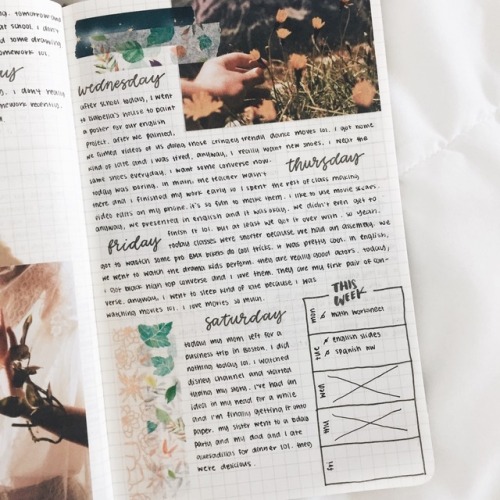 . tomorrow and
at school. i don't
d some drawing
omework lol.
ay
. i don't really
mework recently.
wednesday
after school today, i went
to isabella's house to paint
a poster for our english
project. after we painted,
we filmed videos of us doing those cringey trendy dance moves lol. i got home
kind of late and i was tired. anyway, i really want new shoes. i wear the
same shoes everyday. i want some converse now.
thursday
today was boring. in math, the teacher wasn't
there and i finished my work early so i spent the rest of class making
video edits on my phone. it's so fun to make them. i like to use movie scenes.
anyway, we presented in english and it was okay. we didn't even get to
finish it lol. but at least we got it over with. so yeah.
friday
today classes were shorter because we had an assembly. we
got to watch some pro bmx bikers do cool tricks. it was pretty cool. in english,
we went to watch the drama kids perform. they are really good actors. today,
i got black high top converse and i love them. they are my first pair of con-
verse. anyway, i went to sleep kind of late because i was
watching movies lol. i love movies so much.
saturday
today my mom left for a
business trip in boston. i did
nothing today lol. i watched
disney channel and started
my story. i've had an
idea in my head for a while
and i'm finally getting it onto
paper. my sister went to a bday
party and my dad and i ate
quesadillas for dinner lol. they
were delicious.
THIS
WEEK
mon
math worksheet
tue
english slides
spanish hw
wed
thu
fri